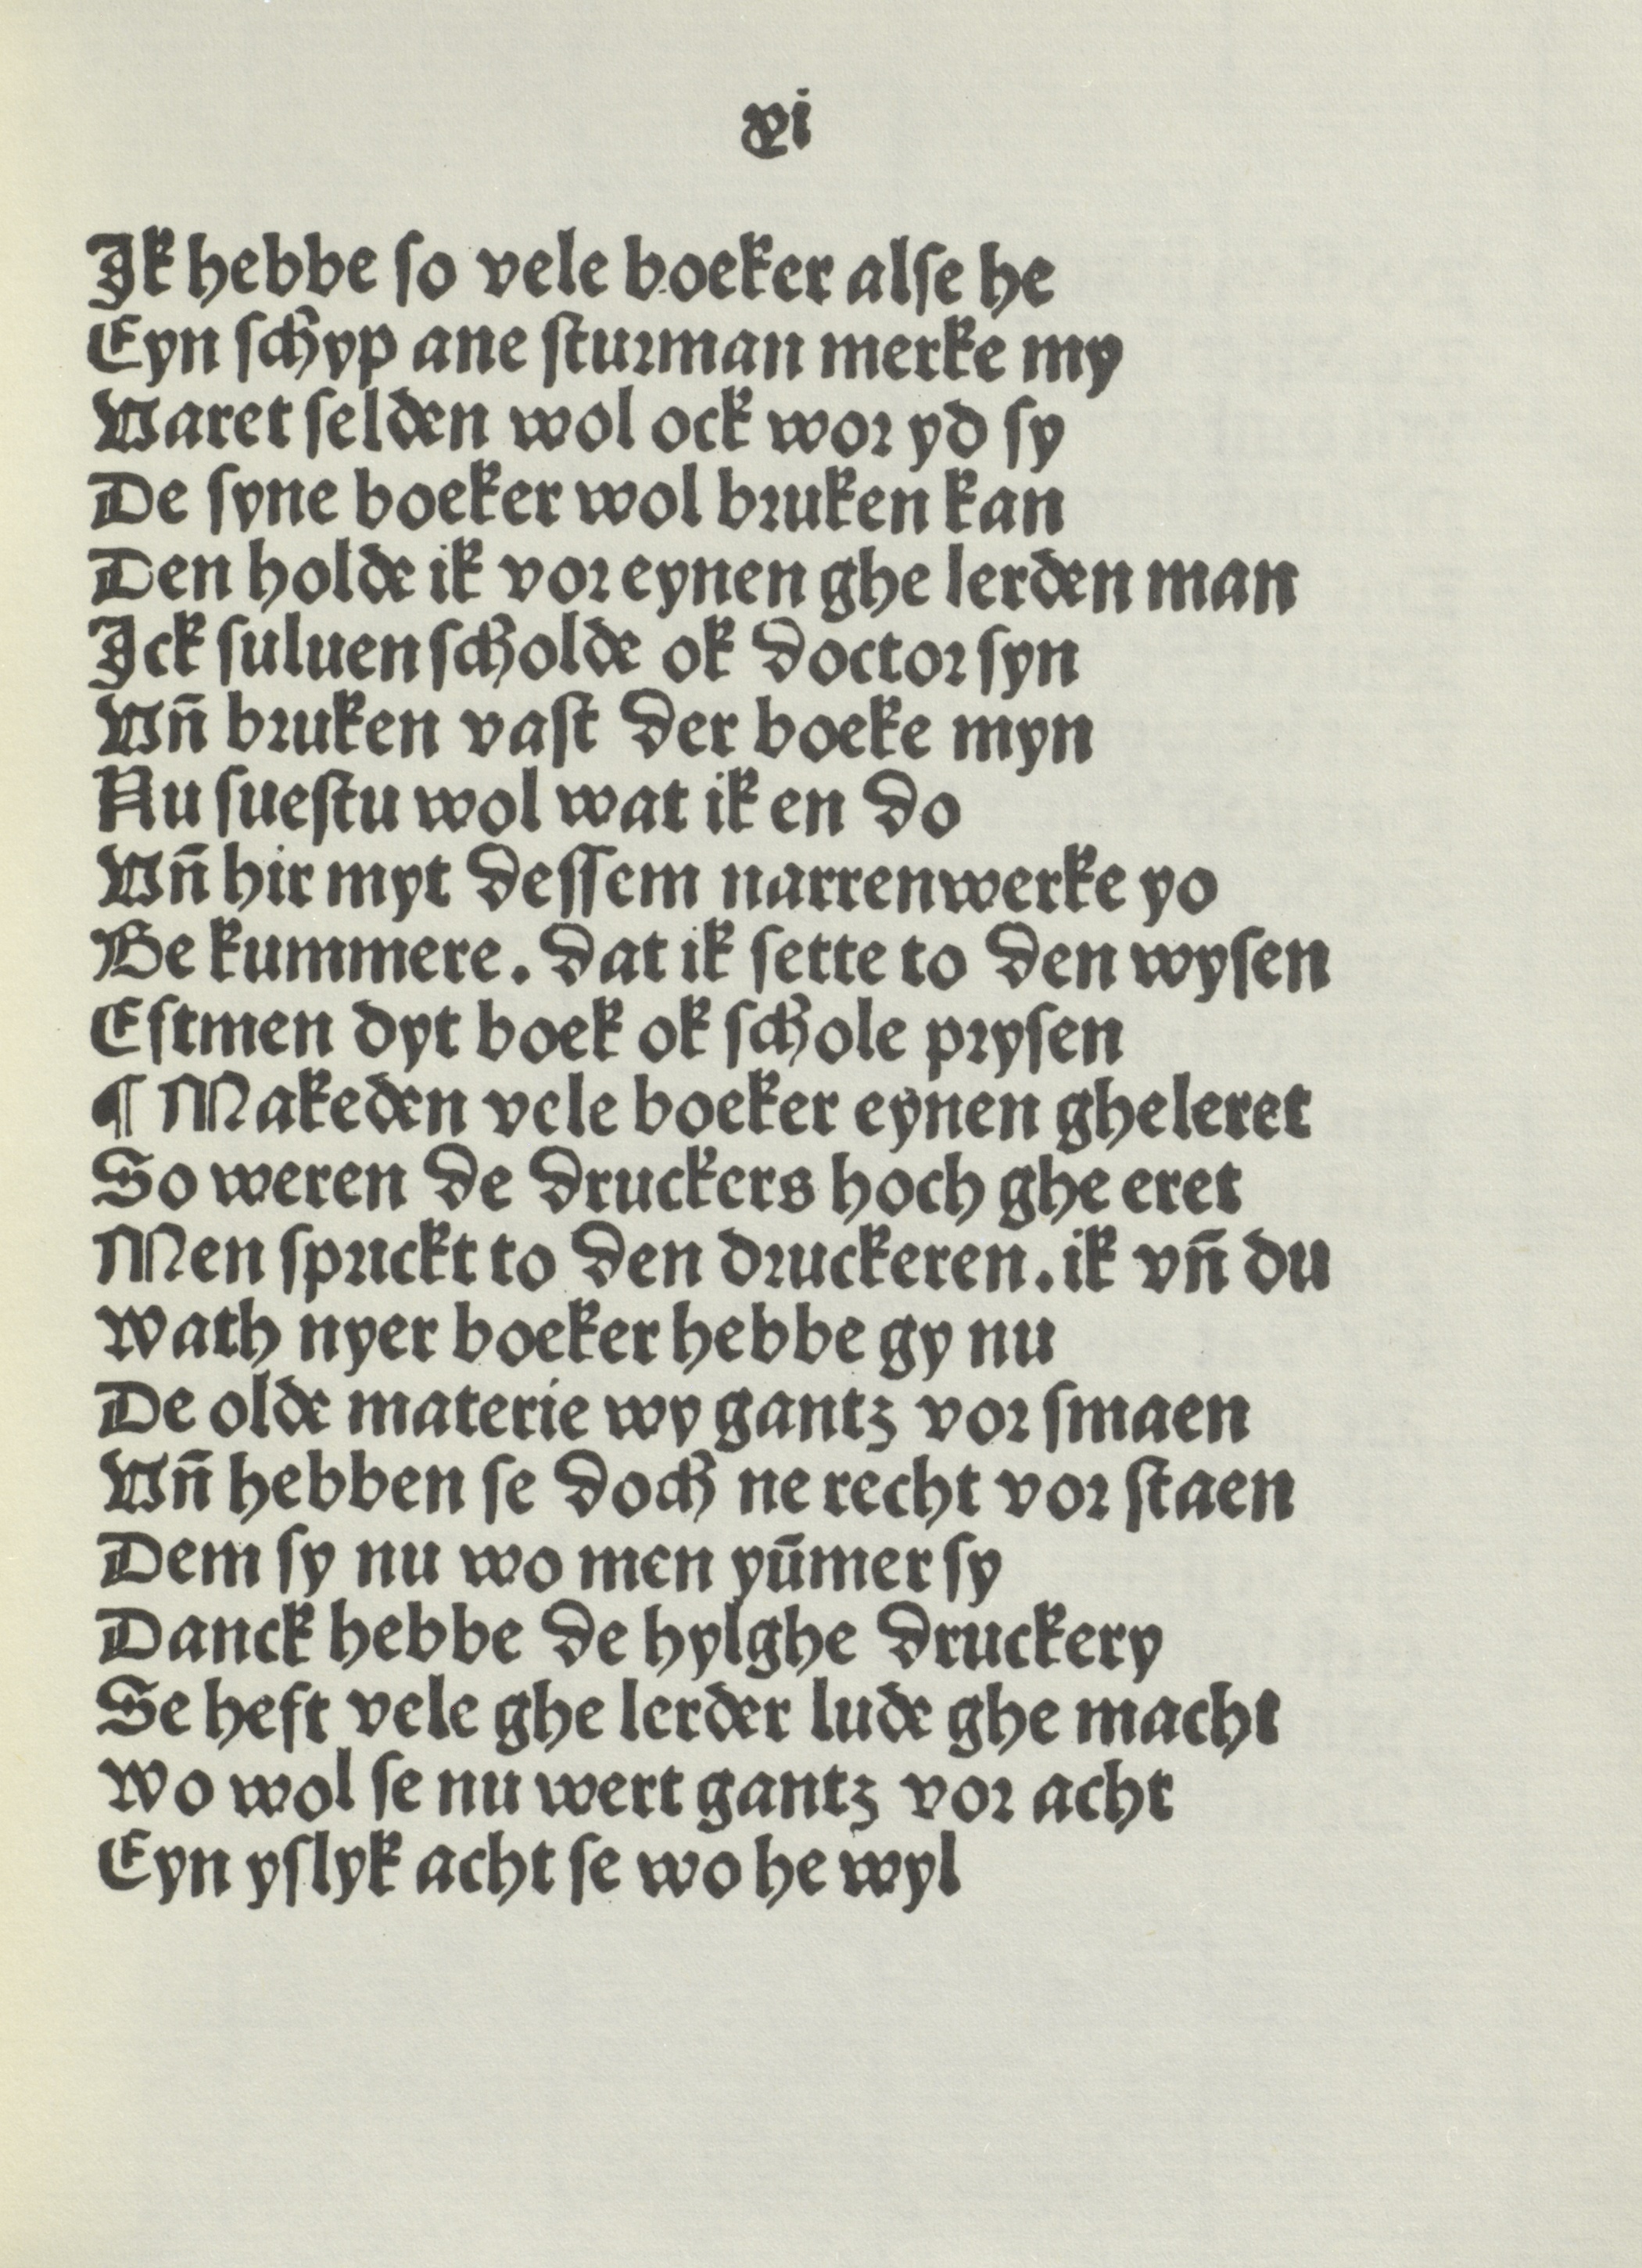 xi
Ik hebbe ſo vele boeker alſe he
Eyn ſchyp ane ſturman merke my
Varet ſelden wol ock wor yd ſy
De ſyne boeker wol bruken kan
Den holde ik vor eynen ghe lerden man
Ick ſuluen ſcholde ok doctor ſyn
Vn̄ bruken vaſt der boeke myn
Nu ſueſtu wol wat ik en do
Vn̄ hir myt deſſem narrenwerke yo
Be kummere. dat ik ſette to den wyſen
Eſtmen dyt boek ok ſchole pryſen
¶ Makeden vele boeker eynen gheleret
So weren de druckers hoch ghe eret
Men ſprickt to den druckeren. ik vn̄ du
Wath nyer boeker hebbe gy nu
De olde materie wy gantz vor ſmaen
Vn̄ hebben ſe doch ne recht vor ſtaen
Dem ſy nu wo men yūmer ſy
Danck hebbe de hylghe druckery
Se heft vele ghe lerder lude ghe macht
Wo wol ſe nu wert gantz vor acht
Eyn yſlyk acht ſe wo he wyl